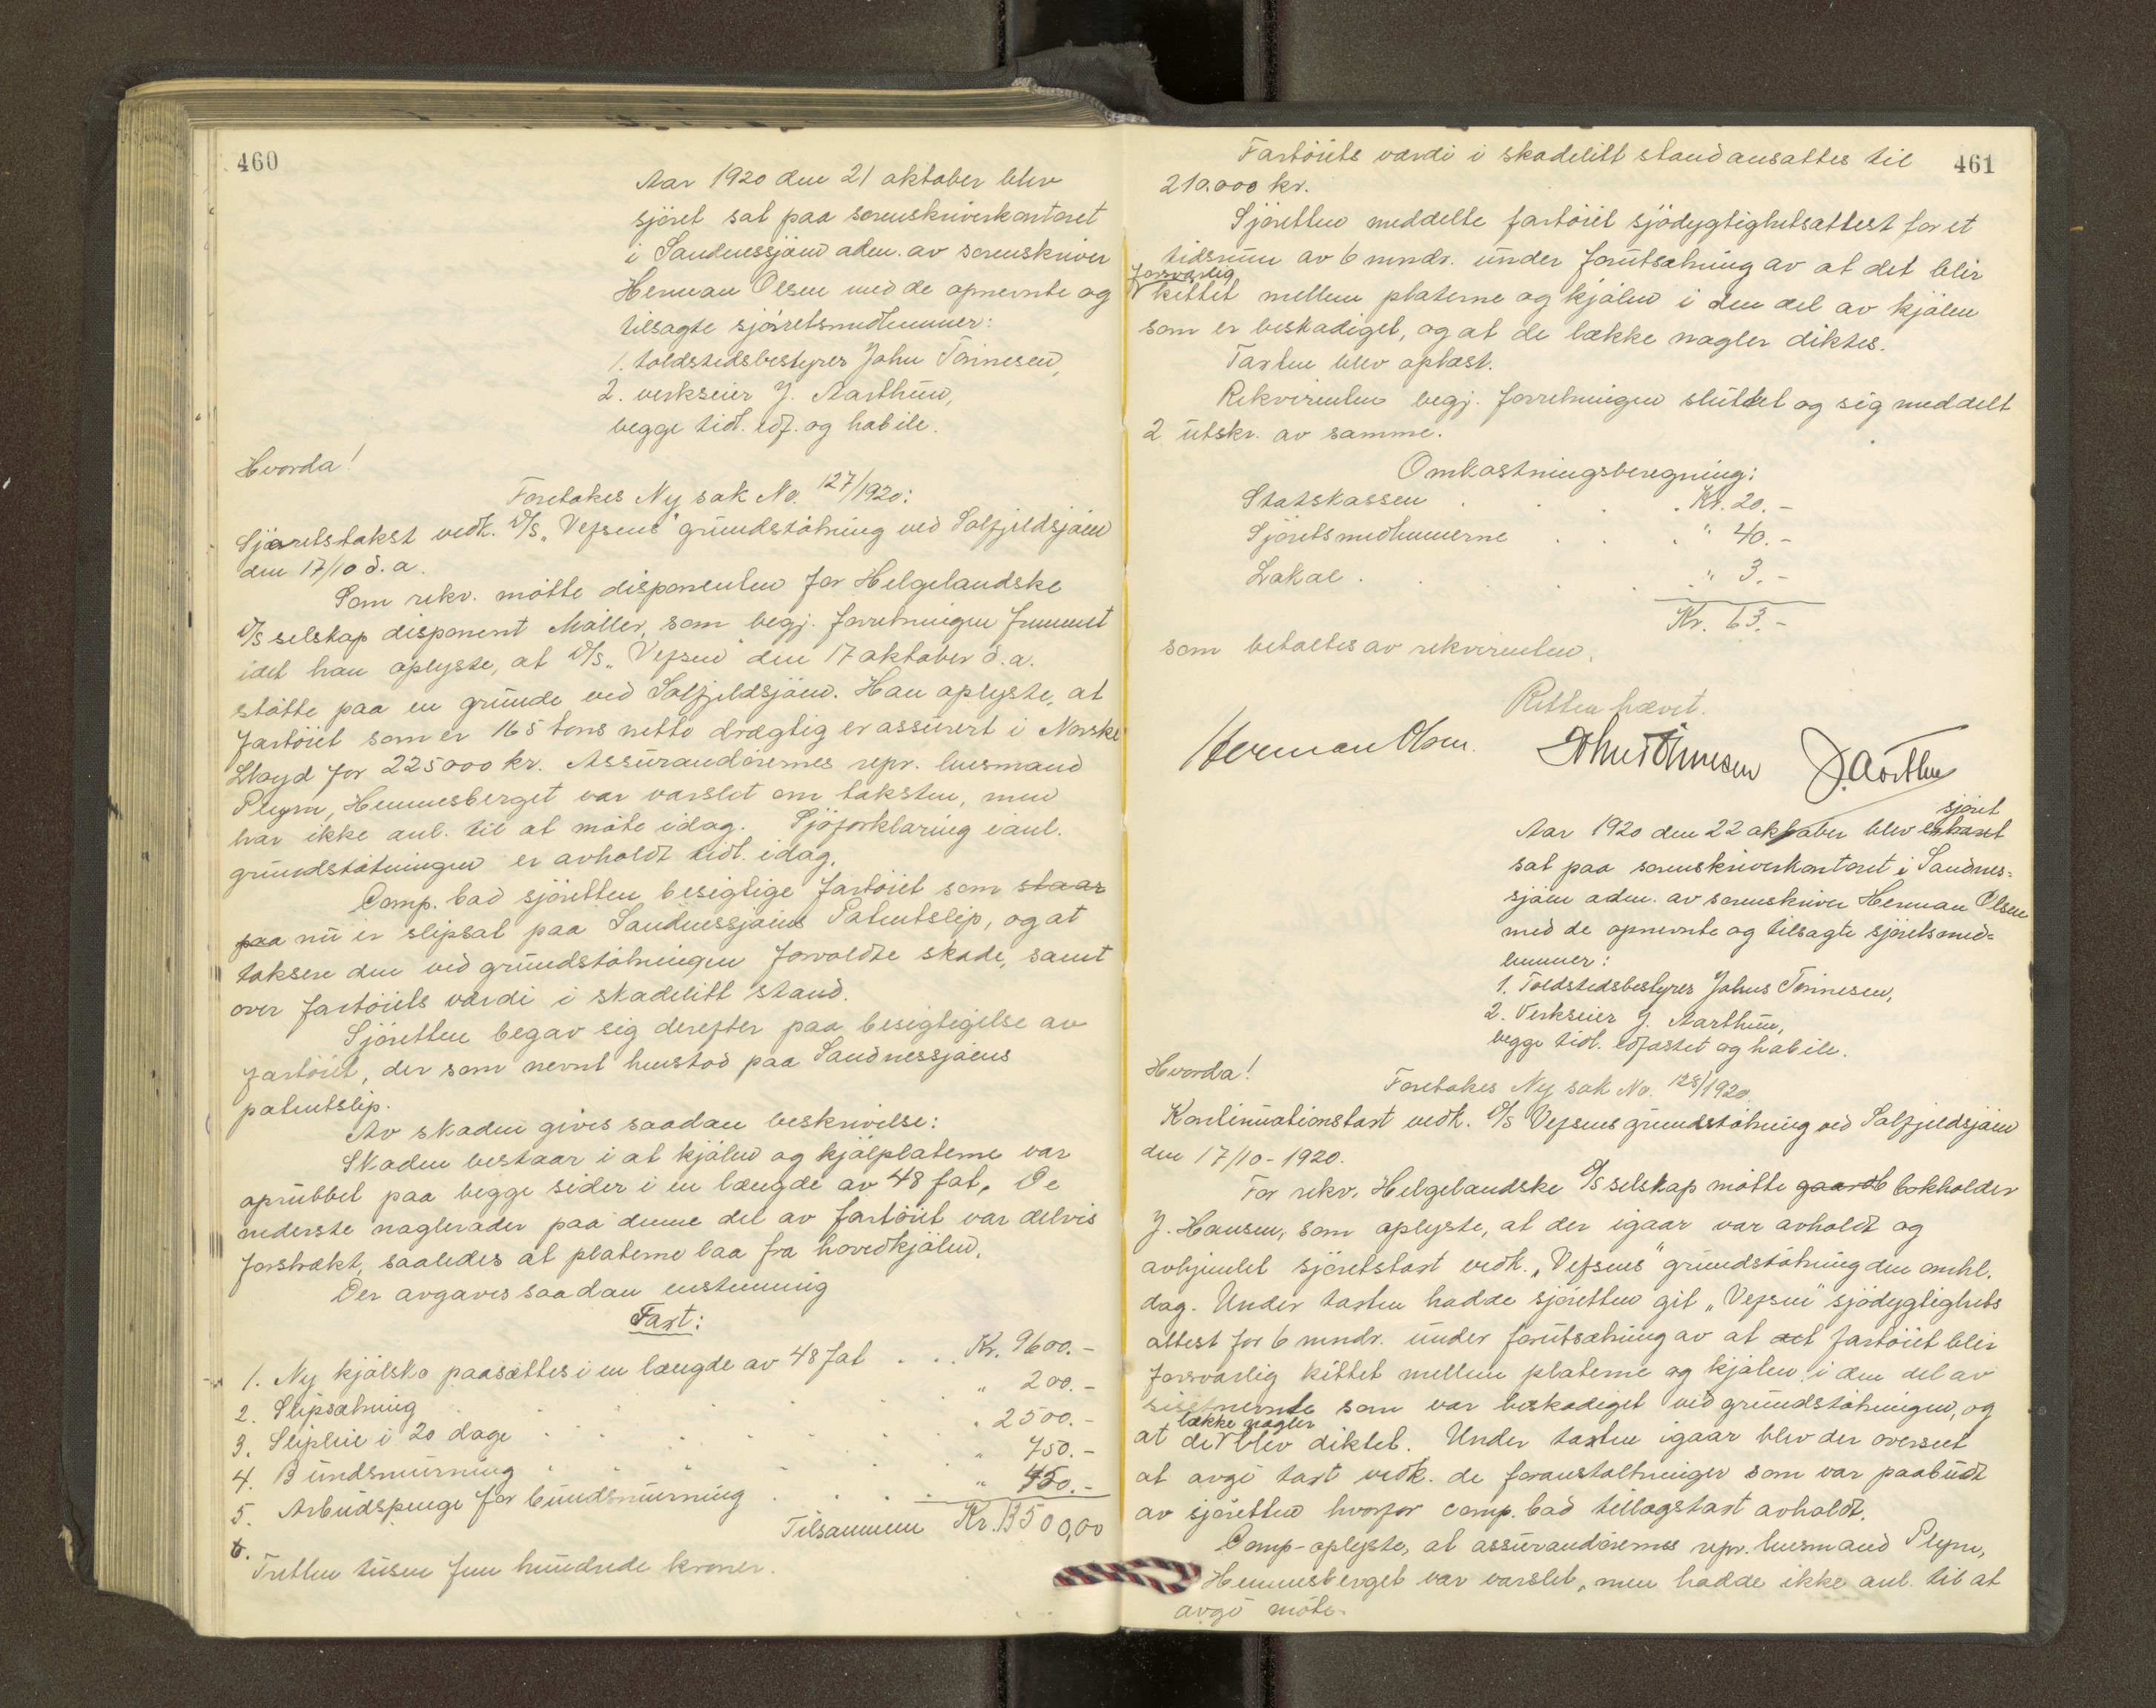 460
Aar 1920 den 21 oktober blev
sjöret sat paa sorenskriverkontoret
i Sandnessjøen adm. av sorenskriver
Herman Olsen med de opnevnte og
tilsagte sjörretsmedlemmer:
1. toldstedsbestyrer John Tönnesen,
2. verkseier J. Aarthun,
begge tidl. edf. og habile.
Hvorda!
Foretokes Ny sak No. 127/1920:
Sjøretstakst vedk. D/S „Vefsens" grundstötning ved Solfjeldsjöen
den 17/10 d.a.
Som rekv. mötte disponenten for Helgelandske
D/Sselskap disponent Möller, som begj. forretningen fremmet
idet han oplyste, at D/S „Vefsen" den 17 oktober d.a.
stötte paa en grunde ved Solfjeldsjöen. Han oplyste, at
fartöiet som er 165 tons netto drægtig er assurert i Norske
Lloyd for 225000 kr. Assurandörernes repr. lensmand
Plym, Hemnesberget var varslet om taksten, men
har ikke anl. til at möte idag. Sjöforklaring i anl.
grundstötningen er avholdt tidl. idag.
Comp. bad sjöretten besigtige fartöiet som staar
paa nu er slipsat paa Sandnessjöens Patentslip, og at
taksere den ved grundstötningen forvoldte skade, samt
over fartöiets værdi i skadelitt stand.
Sjöretten begav sig derefter paa besigtigelse av
fartöiet, der som nevnt henstod paa Sandnessjöens
patentslip.
Av skaden gives saadan beskrivelse:
Skaden bestaar i at kjölen og kjölplaterne var
oprubbet paa begge sider i en længde av 48 fot. De
nederste naglerader paa denne del av fartöiet var delvis
forstrakt, saaledes at platerne laa fra hovedkjölen.
Der avgaves saadan enstemmig
Taxt:
1. Ny kjölsko paasættes i en længde av 48 fot . . . Kr. 9600.-
2. Slipsætning . . . " 200.-
3. Slipleie i 20 dage . . . " 2500.-
4. Bundsmurning . . . " 750.-
5. Arbeidspenge for bundsmurning . . . " 450.-
6. Tilsammen Kr. 13500,00
Tretten tusen fem hundrede kroner.
461
Fartöiets værdi i skadelitt stand ansattes til
210.000 kr.
Sjöretten meddelte fartöiet sjödygtighetsattest for et
tidsrum av 6 mndr. under forutsætning av at det blir
forsvarlig
kittet mellem platerne og kjölen i den del av kjölen
som er beskadiget, og at de lække nagler diktes.
Taxten blev oplæst.
Rekvirenten begj. forretningen sluttet og sig meddelt
2 utskr. av samme.
Omkostningsberegning:
Statskassen . . . Kr. 20.-
Sjöretsmedlemmerne . . . " 40.-
Lokal . . . " 3.-
Kr. 63.-
som betaltes av rekvirenten.
Retten hævet.
Herman Olsen. John Tönnesen J. Aarthun
sjöret
Aar 1920 den 22 oktober blev
sat paa sorenskriverkontoret i Sandnes=
sjøen adm. av sorenskriver Herman Olsen
med de opnevnte og tilsagte sjöretsmed=
lemmer:
1. Toldstedsbestyrer Johns Tönnesen,
2. Verkseier J. Aarthun,
begge tidl. edfæstet og habile.
Hvorda!
Foretokes Ny sak No. 128/1920.
Kontinuationstaxt vedk. D/S Vefsens grundstötning ved Solfjeldsjöen
den 17/10-1920.
For rekv. Helgelandske D/Sselskap mötte bokholder
J. Hansen, som oplyste, at der igaar var avholdt og
avhjemlet sjöretstaxt vedk. „Vefsens" grundstötning den omhl.
dag. Under taxten hadde sjöretten git „Vefsen" sjödygtighets
attest for 6 mndr. under forutsætning av at det fartöiet blir
forsvarlig kittet mellem platerne og kjölen i den del av
sistnevnte som var beskadiget ved grundstötningen, og
lække nagler
at de blev diktet. Under taxten igaar blev der overseet
at avgi taxt vedk. de foranstaltninger som var paabudt
av sjöretten hvorfor comp. bad tillægstaxt avholdt.
Comp. oplyste, at assurandörernes repr. lensmand Plym,
Hemnesberget var varslet, men hadde ikke anl. til at
avgi möte.